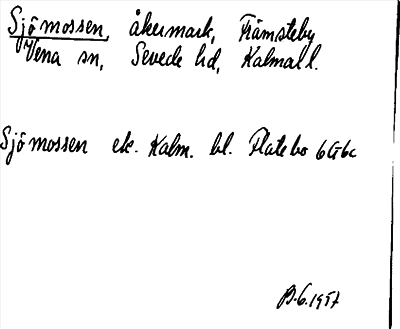 Sjömossen, åkermark, Främsteby
Vena sn, Sevede hd, Kalmar l.
Sjömossen ek. Kalm. bl. Flatebo 6G6c
B.G. 1957